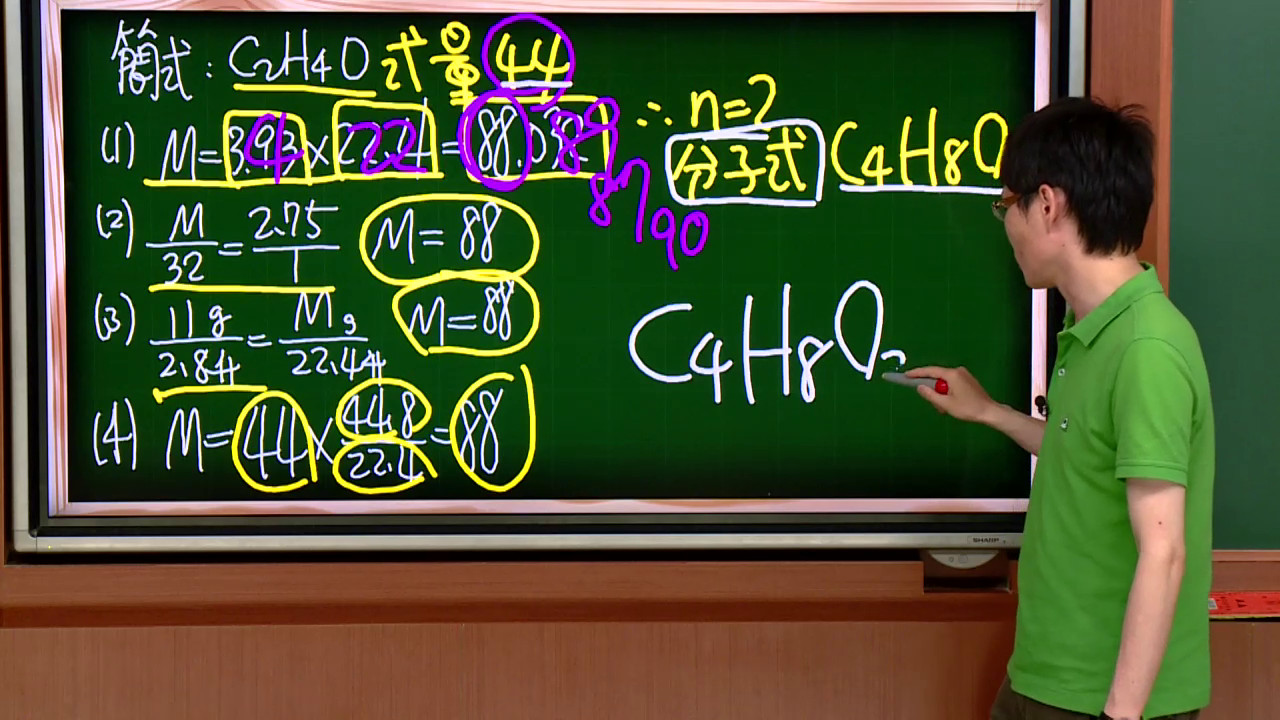 簡式：C₂H₄O 式量 44
(1) M=3.93×22.4=88.032
4 22 88 89
87
90
∴ n=2
分子式 C₄H₈O
(2) M/32=2.75/1 M=88
(3) 11g/2.84=Mg/22.4 M=88
(4) M=44×44.8/22.4=88
C₄H₈O₂
SHARP